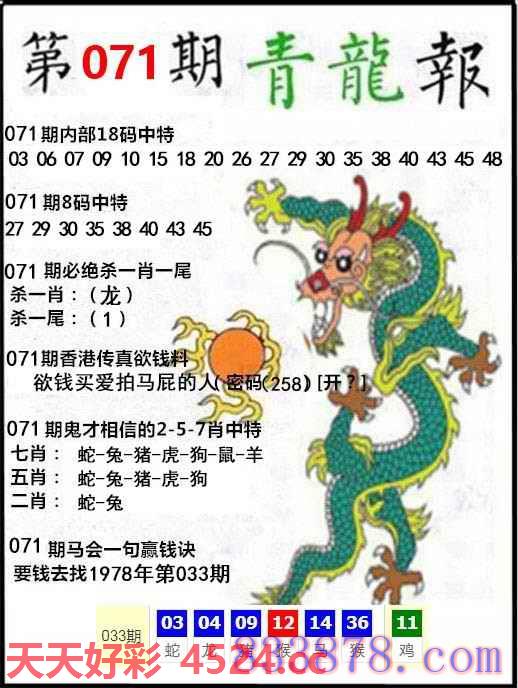 第071期青龍報
071期内部18码中特
03 06 07 09 10 15 18 20 26 27 29 30 35 38 40 43 45 48
071期8码中特
27 29 30 35 38 40 43 45
071期必绝杀一肖一尾
杀一肖：（龙）
杀一尾：（1）
071期香港传真欲钱料
欲钱买爱拍马屁的人(密码(258)[开？]
071期鬼才相信的2-5-7肖中特
七肖： 蛇-兔-猪-虎-狗-鼠-羊
五肖： 蛇-兔-猪-虎-狗
二肖： 蛇-兔
071期马会一句赢钱诀
要钱去找1978年第033期
033期 03 04 09 12 14 36 11
蛇 龙 猪 猴 马 猴 鸡
天天好彩 4524.cc
833878.com